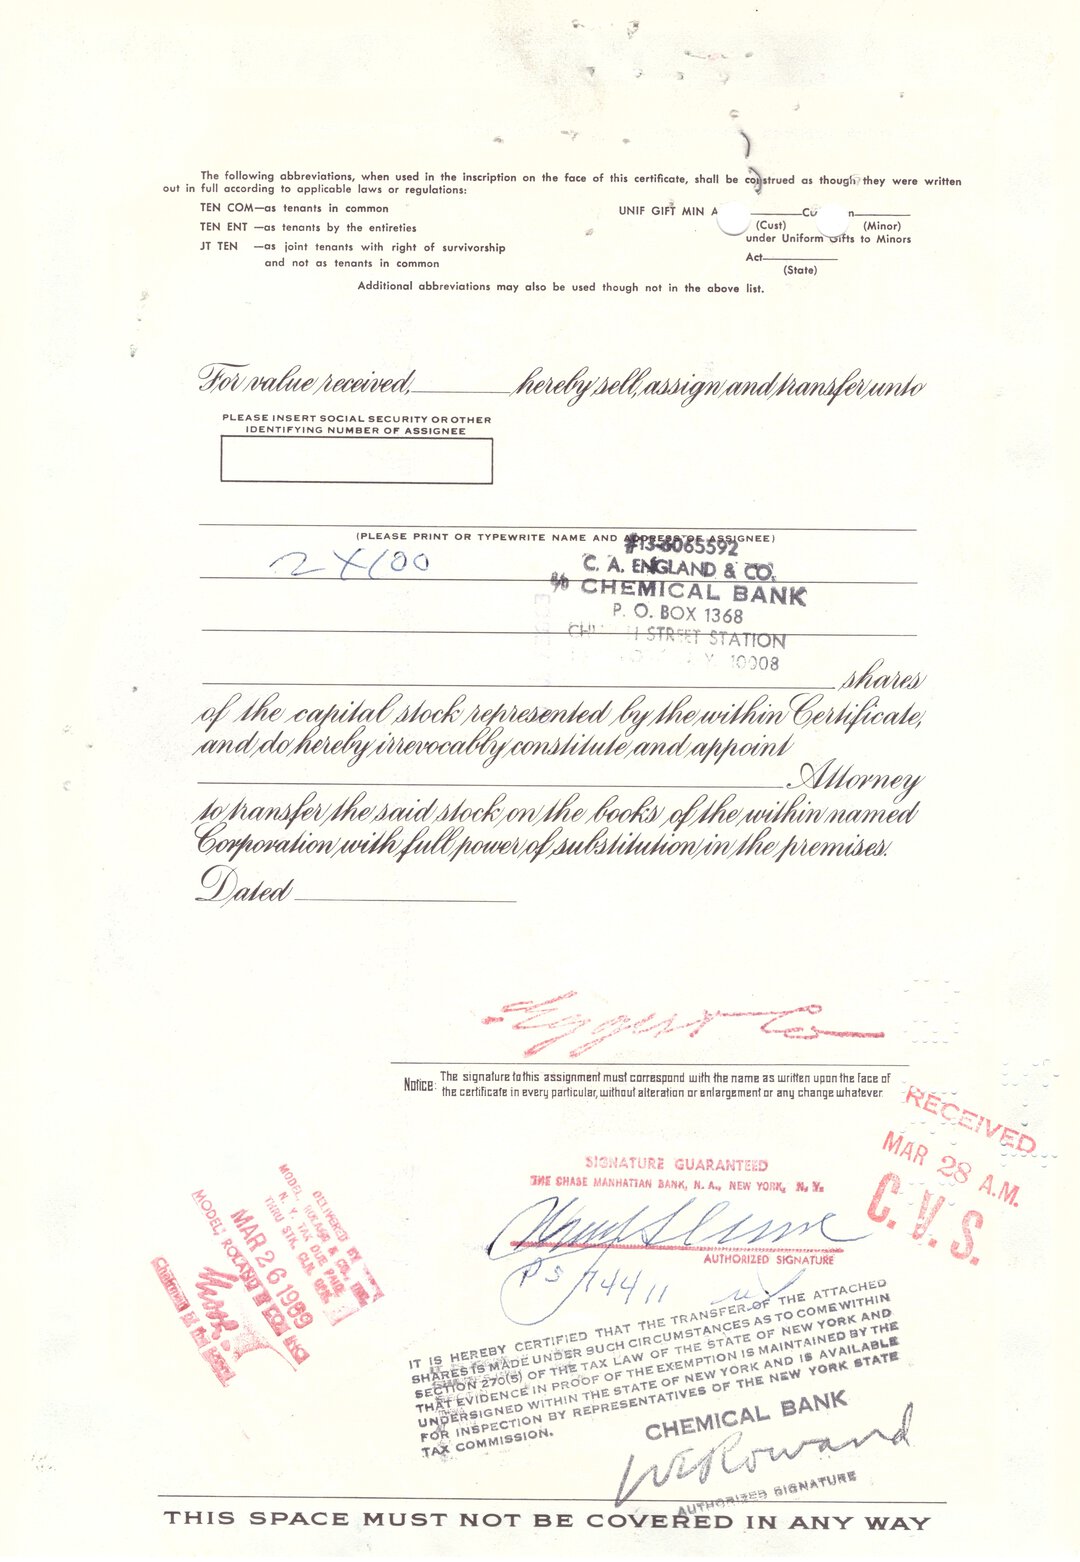 The following abbreviations, when used in the inscription on the face of this certificate, shall be construed as though they were written
out in full according to applicable laws or regulations:
TEN COM—as tenants in common
TEN ENT —as tenants by the entireties
JT TEN —as joint tenants with right of survivorship
and not as tenants in common
UNIF GIFT MIN A
(Cust) (Minor)
under Uniform Gifts to Minors
Act
(State)
Additional abbreviations may also be used though not in the above list.
For value received, hereby sell, assign and transfer unto
PLEASE INSERT SOCIAL SECURITY OR OTHER
IDENTIFYING NUMBER OF ASSIGNEE
(PLEASE PRINT OR TYPEWRITE NAME AND ADDRESS OF ASSIGNEE)
2 X 100
#13-6065592
C. A. ENGLAND & CO.
c/o CHEMICAL BANK
P. O. BOX 1368
CHURCH STREET STATION
10008
shares
of the capital stock represented by the within Certificate,
and do hereby irrevocably constitute and appoint
Attorney
to transfer the said stock on the books of the within named
Corporation with full power of substitution in the premises.
Dated
Eggers & Co
Notice: The signature to this assignment must correspond with the name as written upon the face of
the certificate in every particular, without alteration or enlargement or any change whatever
RECEIVED
MAR 28 A.M.
C. V. S.
SIGNATURE GUARANTEED
THE CHASE MANHATTAN BANK, N. A., NEW YORK, N. Y.
AUTHORIZED SIGNATURE
PS 74411
DELIVERED BY
MODEL, ROLAND & CO., INC.
N. Y. TAX DUE PAID
THRU STK. CLR. CPN.
MAR 26 1969
MODEL, ROLAND & CO. INC
IT IS HEREBY CERTIFIED THAT THE TRANSFER OF THE ATTACHED
SHARES IS MADE UNDER SUCH CIRCUMSTANCES AS TO COME WITHIN
SECTION 270(5) OF THE TAX LAW OF THE STATE OF NEW YORK AND
THAT EVIDENCE IN PROOF OF THE EXEMPTION IS MAINTAINED BY THE
UNDERSIGNED WITHIN THE STATE OF NEW YORK AND IS AVAILABLE
FOR INSPECTION BY REPRESENTATIVES OF THE NEW YORK STATE
TAX COMMISSION.
CHEMICAL BANK
WERowand
AUTHORIZED SIGNATURE
THIS SPACE MUST NOT BE COVERED IN ANY WAY